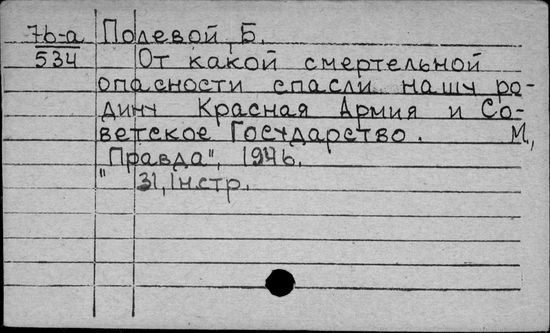 76-а Полевой Б.
534 От какой смертельной
опасности спасли нашу ро-
дину Красная Армия и Со-
ветское Государство. М,
"Правда", 1946.
31, Iнстр.